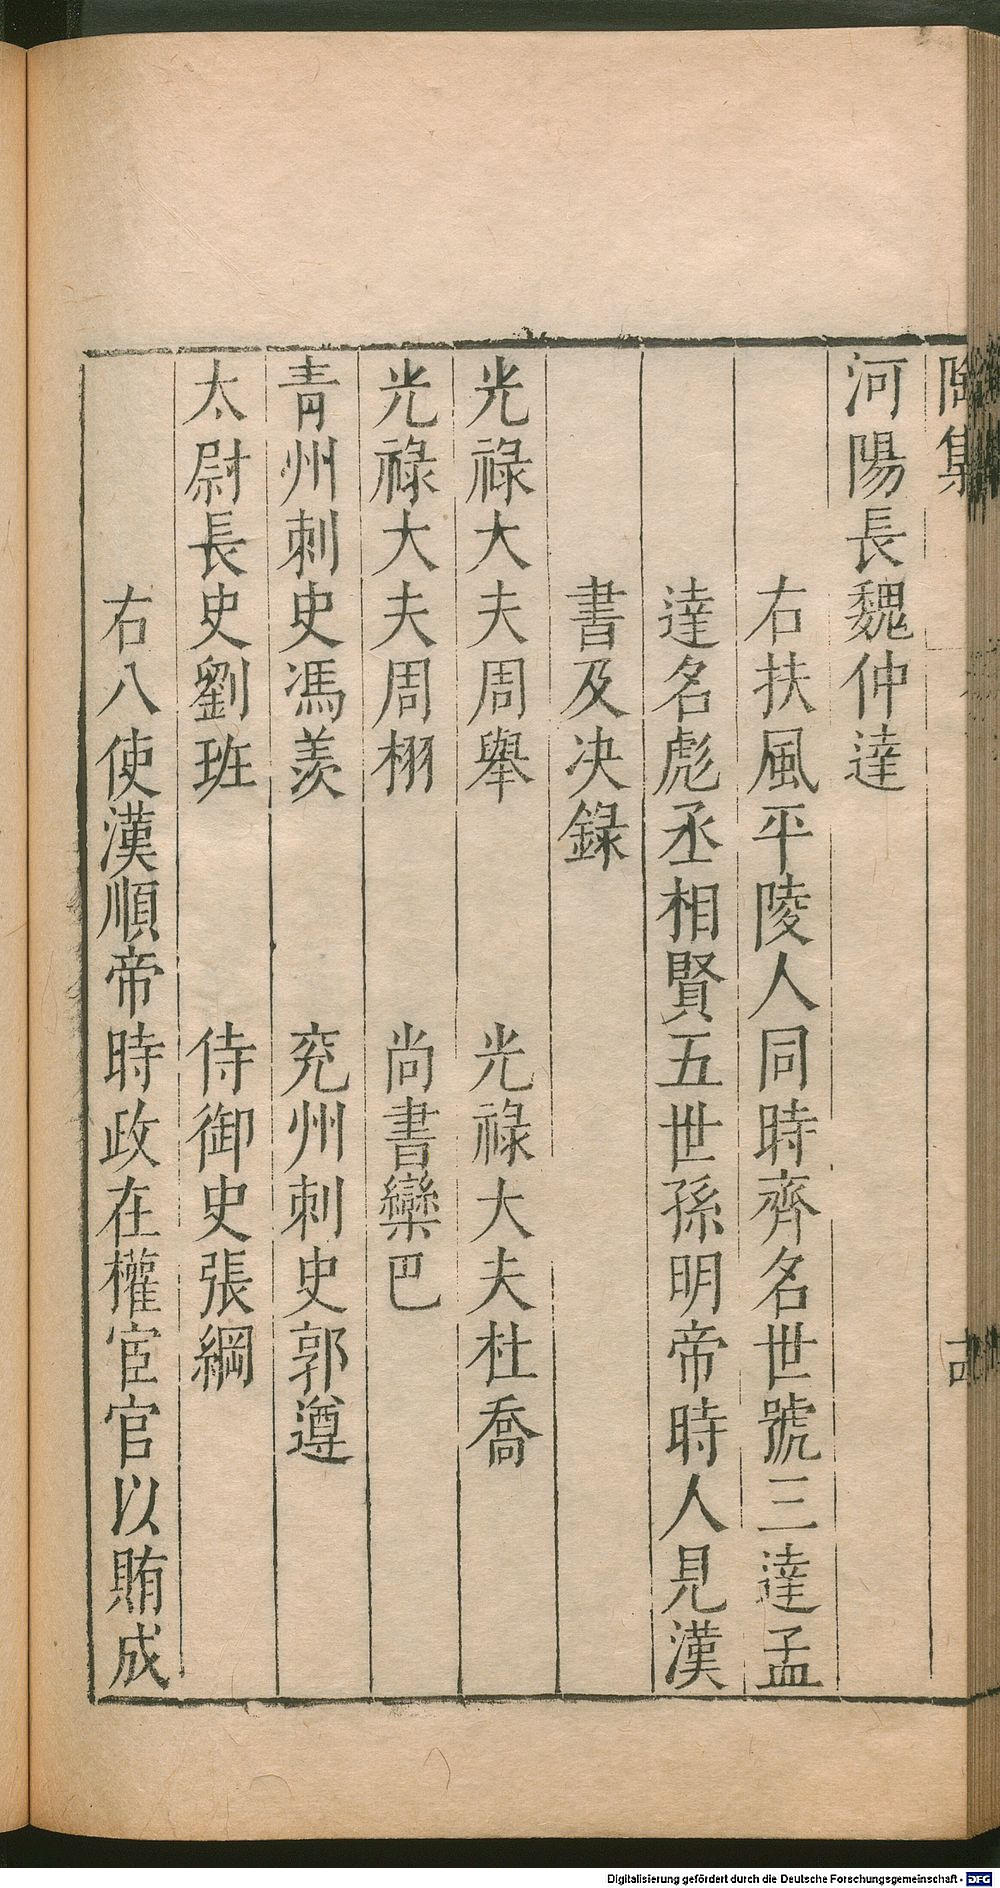 陶集
河陽長魏仲達
右扶風平陵人同時齊名世號三達孟
達名彪丞相賢五世孫明帝時人見漢
書及决録
光祿大夫周舉 光祿大夫杜喬
光祿大夫周栩 尚書欒巴
青州刺史馮羨 兖州刺史郭遵
太尉長史劉班 侍御史張綱
右八使漢順帝時政在權宦官以賄成
Digitalisierung gefördert durch die Deutsche Forschungsgemeinschaft - DFG